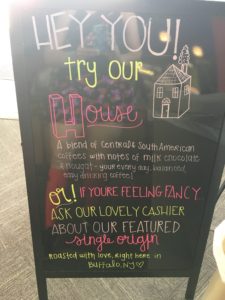 HEY YOU!
try our
House
A blend of Central & South American
coffees with notes of milk chocolate
& nougat - your every day, balanced
easy drinking coffee!
or! IF YOU'RE FEELING FANCY
ASK OUR LOVELY CASHIER
ABOUT OUR FEATURED
single origin
Roasted with love, right here in
Buffalo, NY ♡